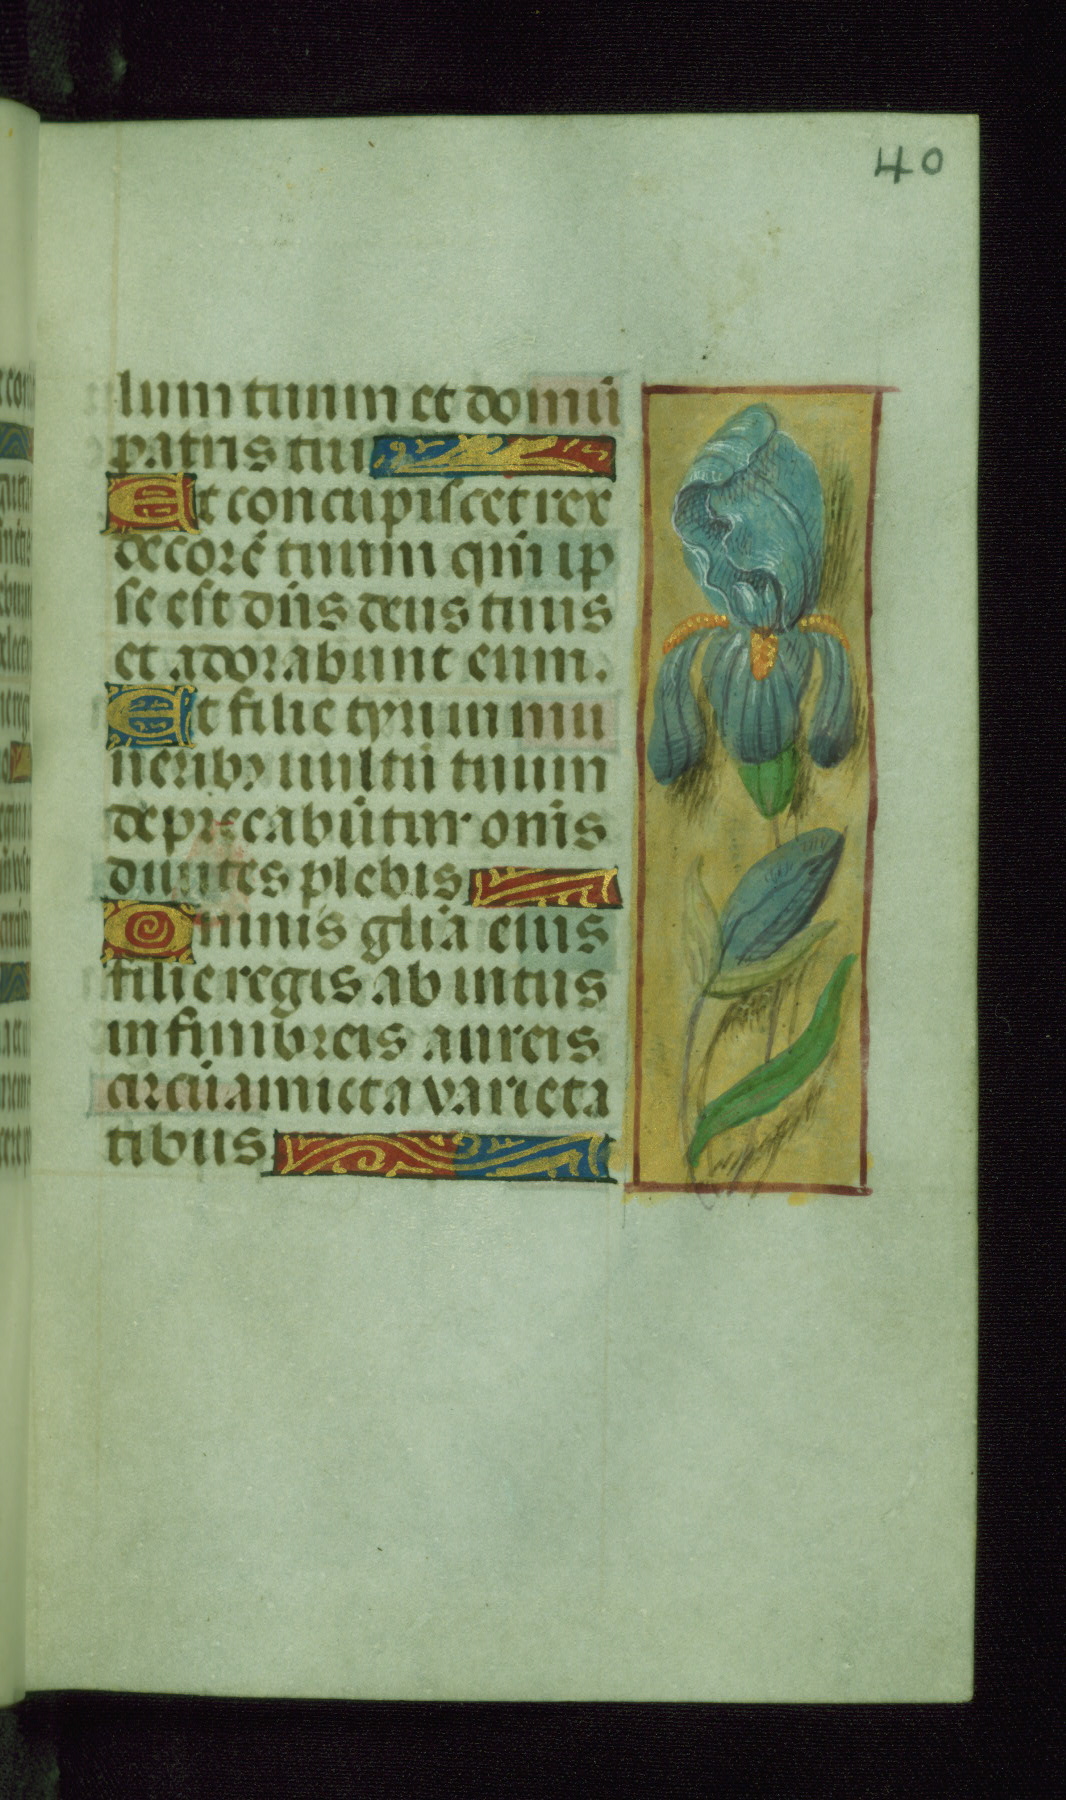 40
lum tuum et domū
patris tui
Et concupiscet rex
decorē tuum qm̄ ip
se est dn̄s deus tuus
et adorabunt eum.
Et filie tyri in mu
neribꝫ vultū tuum
deprecabūtur om̄s
diuites plebis
Omnis gl̄ia eius
filie regis ab intus
in fimbreis aureis
circūamicta varieta
tibus